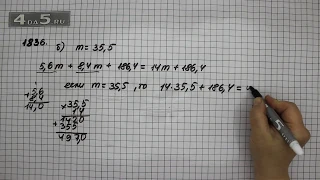 4ДА5.RU
1836.
б) m = 35,5
5,6m + 8,4m + 186,4 = 14m + 186,4
если m = 35,5, то 14·35,5 + 186,4 =
5,6
+ 8,4
14,0
× 35,5
14
1420
+ 355
497,0